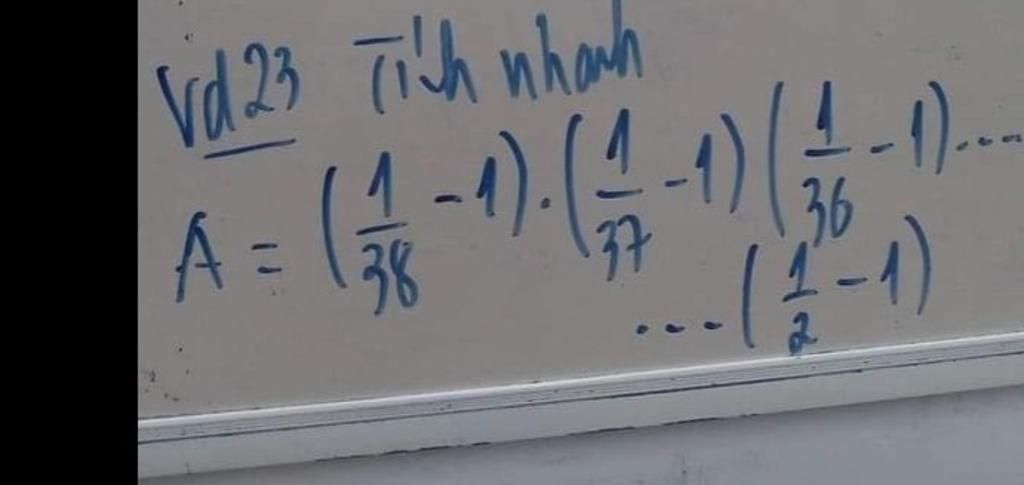 Vd23 Tính nhanh
A = (1/38 - 1).(1/37 - 1)(1/36 - 1)....
....(1/2 - 1)